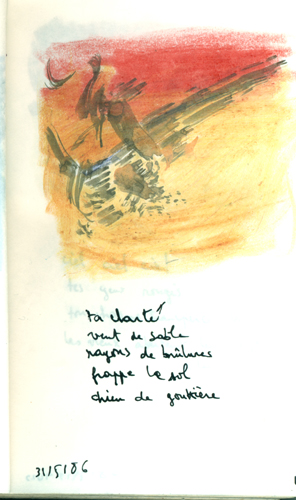 ta clarté
vent de sable
rayons de brûlures
frappe le sol
chien de gouttière
31/5/86